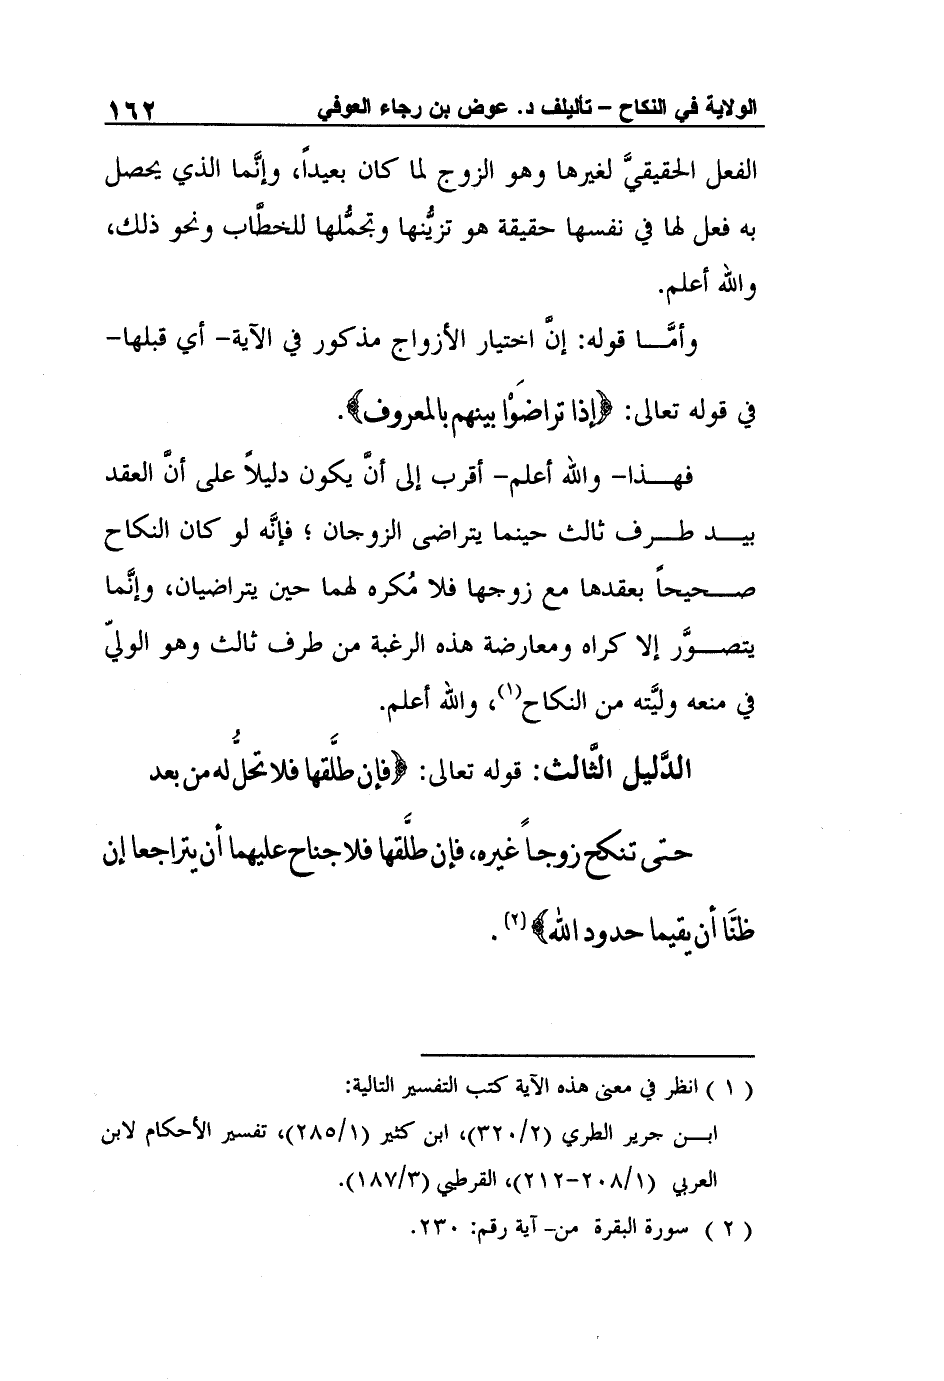 الولاية في النكاح – تأليلف د. عوض بن رجاء العوفي ١٦٢
الفعل الحقيقيَّ لغيرها وهو الزوج لما كان بعيداً، وإنَّما الذي يحصل
به فعل لها في نفسها حقيقة هو تزيُّنها وتجمُّلها للخطَّاب ونحو ذلك،
والله أعلم.
وأمَّـــا قوله: إنَّ اختيار الأزواج مذكور في الآية– أي قبلها–
في قوله تعالى: ﴿إذا تراضَوْا بينهم بالمعروف﴾.
فهـــذا– والله أعلم– أقرب إلى أنَّ يكون دليلاً على أنَّ العقد
بيـــد طـــرف ثالث حينما يتراضى الزوجان ؛ فإنَّه لو كان النكاح
صـــحيحاً بعقدها مع زوجها فلا مُكره لهما حين يتراضيان، وإنَّما
يتصـــوَّر إلا كراه ومعارضة هذه الرغبة من طرف ثالث وهو الوليّ
في منعه وليَّته من النكاح(١)، والله أعلم.
الدَّليل الثَّالث: قوله تعالى: ﴿فإن طلَّقها فلا تحلُّ له من بعد
حتى تنكح زوجاً غيره، فإن طلَّقها فلا جناح عليهما أن يتراجعا إن
ظنَّا أن يقيما حدود الله﴾(٢).
( ١ ) انظر في معنى هذه الآية كتب التفسير التالية:
ابـــن جرير الطري (٣٢٠/٢)، ابن كثير (٢٨٥/١)، تفسير الأحكام لابن
العربي (٢٠٨/١–٢١٢)، القرطبي (١٨٧/٣).
( ٢ ) سورة البقرة من– آية رقم: ٢٣٠.